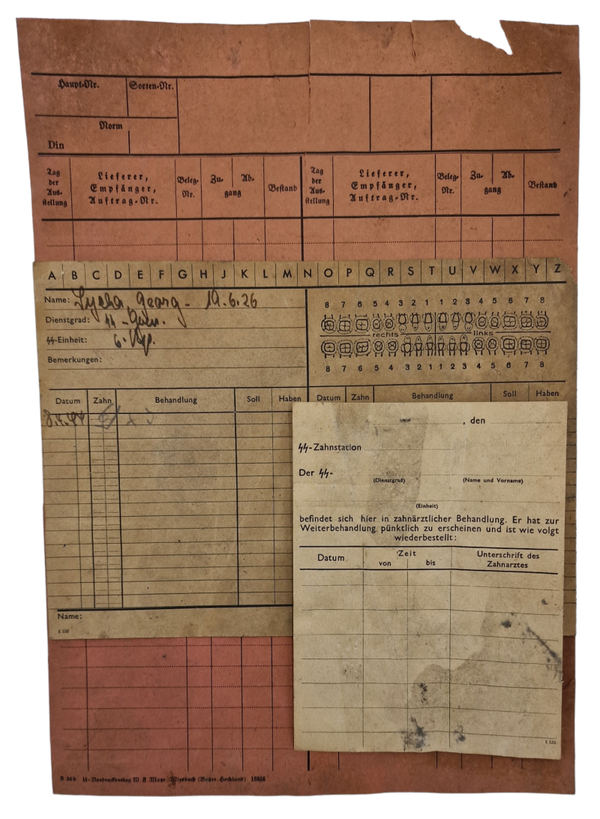 Haupt-Nr. Sorten-Nr.
Norm
Din
Tag der Aus- stellung Lieferer, Empfänger, Auftrag-Nr. Beleg- Nr. Zu- Ab- gang Bestand Tag der Aus- stellung Lieferer, Empfänger, Auftrag-Nr. Beleg- Nr. Zu- Ab- gang Bestand
A B C D E F G H J K L M N O P Q R S T U V W X Y Z
Name: Georg - 19.6.26
Dienstgrad: ᛋᛋ-
ᛋᛋ-Einheit: 6.
Bemerkungen:
8 7 6 5 4 3 2 1 1 2 3 4 5 6 7 8
rechts links
8 7 6 5 4 3 2 1 1 2 3 4 5 6 7 8
Datum Zahn Behandlung Soll Haben Datum Zahn Behandlung Soll Haben
Name:
, den
ᛋᛋ-Zahnstation
Der ᛋᛋ-
(Dienstgrad) (Name und Vorname)
(Einheit)
befindet sich hier in zahnärztlicher Behandlung. Er hat zur
Weiterbehandlung pünktlich zu erscheinen und ist wie volgt
wiederbestellt:
Datum Zeit Unterschrift des
von bis Zahnarztes
ᛋᛋ-Vordruckverlag W. F. Mayr, Miesbach (Bayer. Hochland)